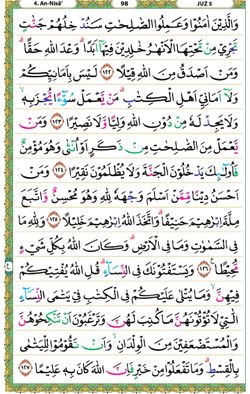 4. An-Nisā' 98 JUZ 5
وَالَّذِيْنَ اٰمَنُوْا وَعَمِلُوا الصّٰلِحٰتِ سَنُدْخِلُهُمْ جَنّٰتٍ
تَجْرِيْ مِنْ تَحْتِهَا الْاَنْهٰرُ خٰلِدِيْنَ فِيْهَآ اَبَدًاۗ وَعْدَ اللّٰهِ حَقًّاۗ
وَمَنْ اَصْدَقُ مِنَ اللّٰهِ قِيْلًا ١٢٢ لَيْسَ بِاَمَانِيِّكُمْ
وَلَآ اَمَانِيِّ اَهْلِ الْكِتٰبِۗ مَنْ يَّعْمَلْ سُوْۤءًا يُّجْزَ بِهٖۙ
وَلَا يَجِدْ لَهٗ مِنْ دُوْنِ اللّٰهِ وَلِيًّا وَّلَا نَصِيْرًا ١٢٣ وَمَنْ
يَّعْمَلْ مِنَ الصّٰلِحٰتِ مِنْ ذَكَرٍ اَوْ اُنْثٰى وَهُوَ مُؤْمِنٌ
فَاُولٰۤىِٕكَ يَدْخُلُوْنَ الْجَنَّةَ وَلَا يُظْلَمُوْنَ نَقِيْرًا ١٢٤ وَمَنْ
اَحْسَنُ دِيْنًا مِّمَّنْ اَسْلَمَ وَجْهَهٗ لِلّٰهِ وَهُوَ مُحْسِنٌ وَّاتَّبَعَ
مِلَّةَ اِبْرٰهِيْمَ حَنِيْفًاۗ وَاتَّخَذَ اللّٰهُ اِبْرٰهِيْمَ خَلِيْلًا ١٢٥ وَلِلّٰهِ مَا
فِى السَّمٰوٰتِ وَمَا فِى الْاَرْضِۗ وَكَانَ اللّٰهُ بِكُلِّ شَيْءٍ
مُّحِيْطًا ١٢٦ وَيَسْتَفْتُوْنَكَ فِى النِّسَاۤءِۗ قُلِ اللّٰهُ يُفْتِيْكُمْ
فِيْهِنَّۙ وَمَا يُتْلٰى عَلَيْكُمْ فِى الْكِتٰبِ فِيْ يَتٰمَى النِّسَاۤءِ
الّٰتِيْ لَا تُؤْتُوْنَهُنَّ مَا كُتِبَ لَهُنَّ وَتَرْغَبُوْنَ اَنْ تَنْكِحُوْهُنَّ
وَالْمُسْتَضْعَفِيْنَ مِنَ الْوِلْدَانِۙ وَاَنْ تَقُوْمُوْا لِلْيَتٰمٰى
بِالْقِسْطِۗ وَمَا تَفْعَلُوْا مِنْ خَيْرٍ فَاِنَّ اللّٰهَ كَانَ بِهٖ عَلِيْمًا ١٢٧